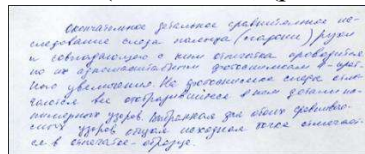 Окончательное детальное сравнительное ис-
следование следа пальца (ладони) руки
и совпадающего с ним отпечатка проводится
по их фотоснимкам 
ного увеличения. На фотоснимке следа отме-
чаются все отобразившиеся в нем детали па-
пиллярного узора. Выбранная для обоих сравнивае-
мых узоров общая исходная точка отмечает-
ся в отпечатке-образце.